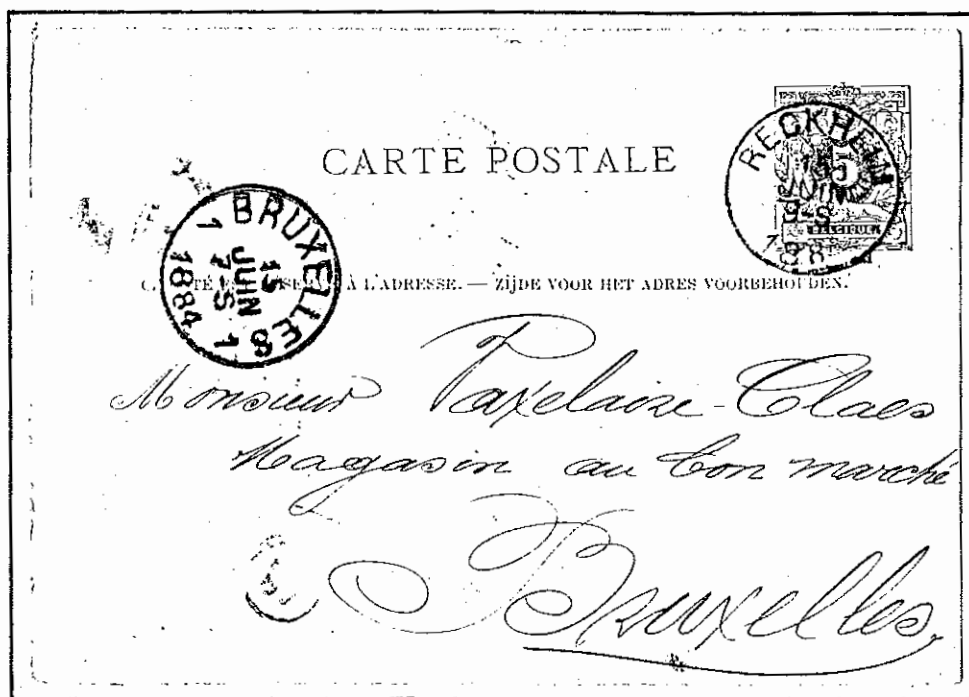 CARTE POSTALE
RECKHEIM
15
JUIN
9-S
188
5
BELGIQUE
BRUXELLES
1 1
15
JUIN
7-S
1884
À L'ADRESSE. — ZIJDE VOOR HET ADRES VOORBEHOUDEN.
Monsieur Vaxelaire-Claes
Magasin au bon marché
Bruxelles